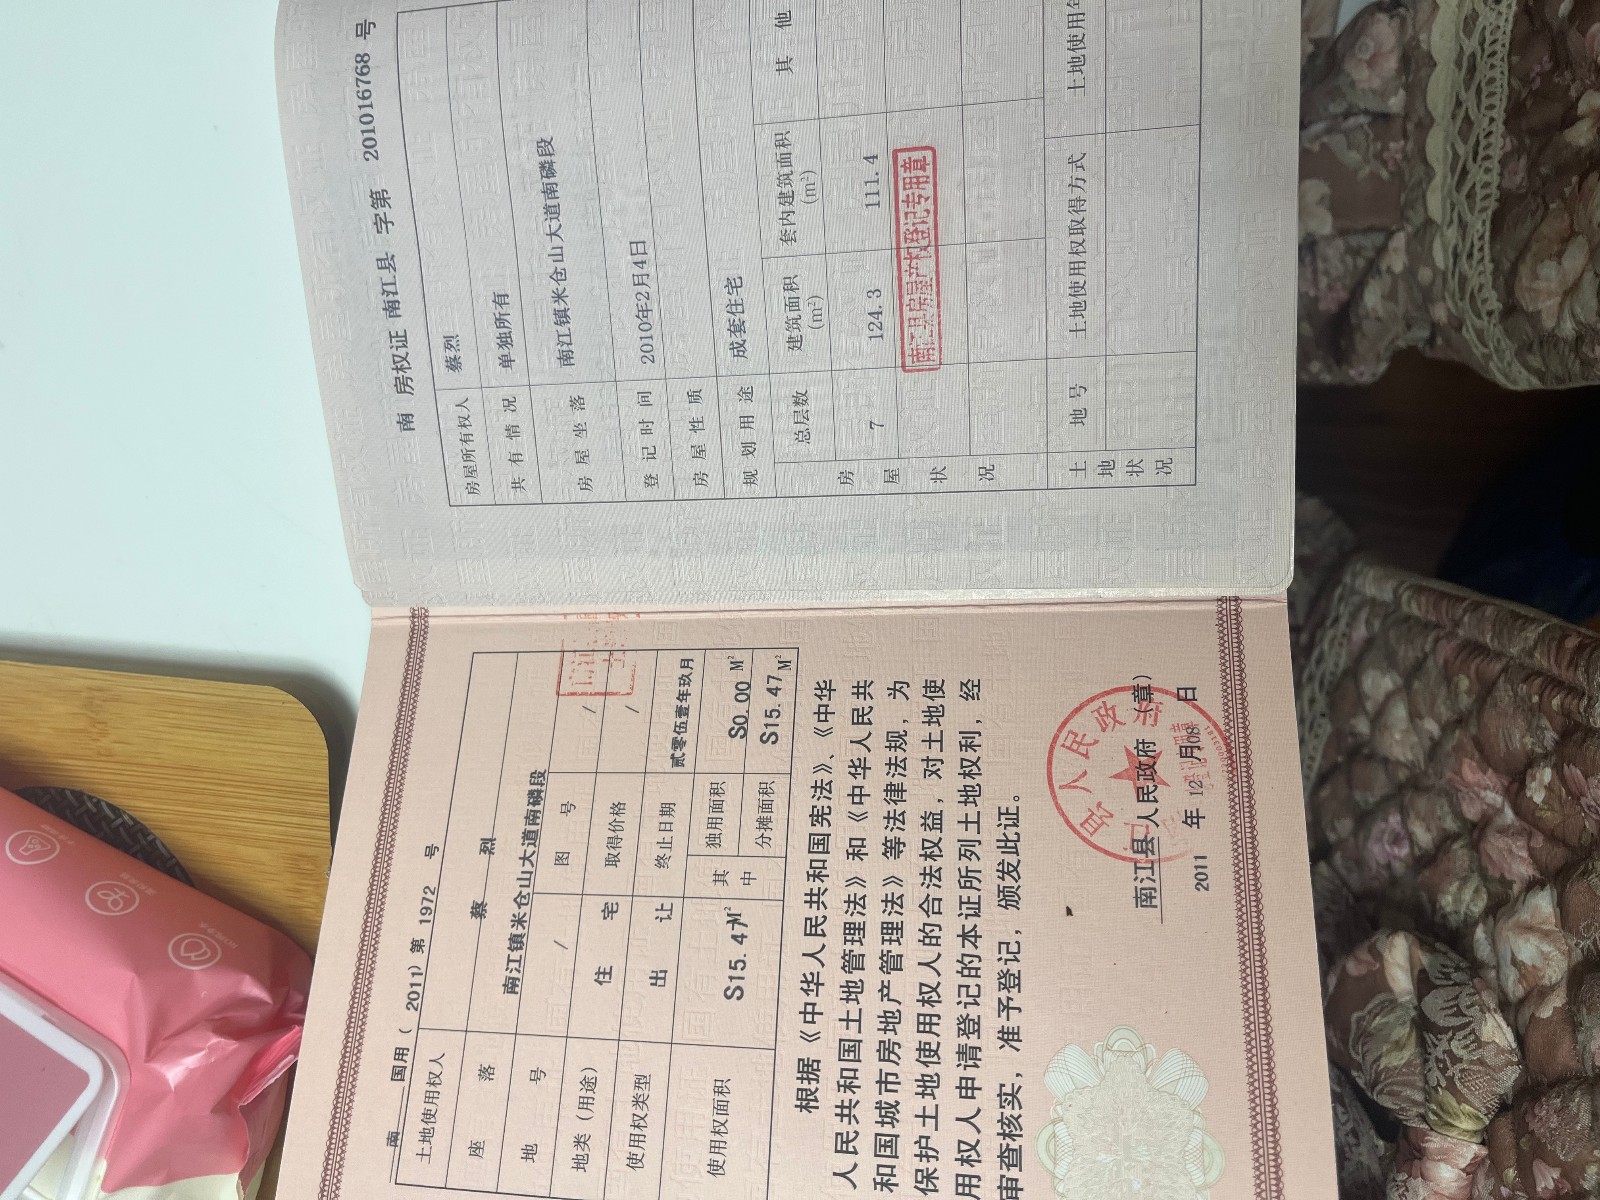 南 房权证 南江县 字第 201016768 号
房屋所有权人 蔡烈
共有情况 单独所有
房屋坐落 南江镇米仓山大道南磷段
登记时间 2010年2月4日
房屋性质
规划用途 成套住宅
房屋状况 总层数 建筑面积(m²) 套内建筑面积(m²) 其他
7 124.3 111.4
南江县房屋产权登记专用章
土地状况 地号 土地使用权取得方式 土地使用年
南 国用( 2011) 第 1972 号
土地使用权人 蔡烈
座落 南江镇米仓山大道南磷段
地号 / 图号 /
地类(用途) 住宅 取得价格 /
使用权类型 出让 终止日期 贰零伍壹年玖月
使用权面积 S15.47M² 其中 独用面积 S0.00 M²
分摊面积 S15.47 M²
根据《中华人民共和国宪法》、《中华
人民共和国土地管理法》和《中华人民共
和国城市房地产管理法》等法律法规，为
保护土地使用权人的合法权益，对土地使
用权人申请登记的本证所列土地权利，经
审查核实，准予登记，颁发此证。
南江县人民政府（章）
2011 年 12 月 08 日